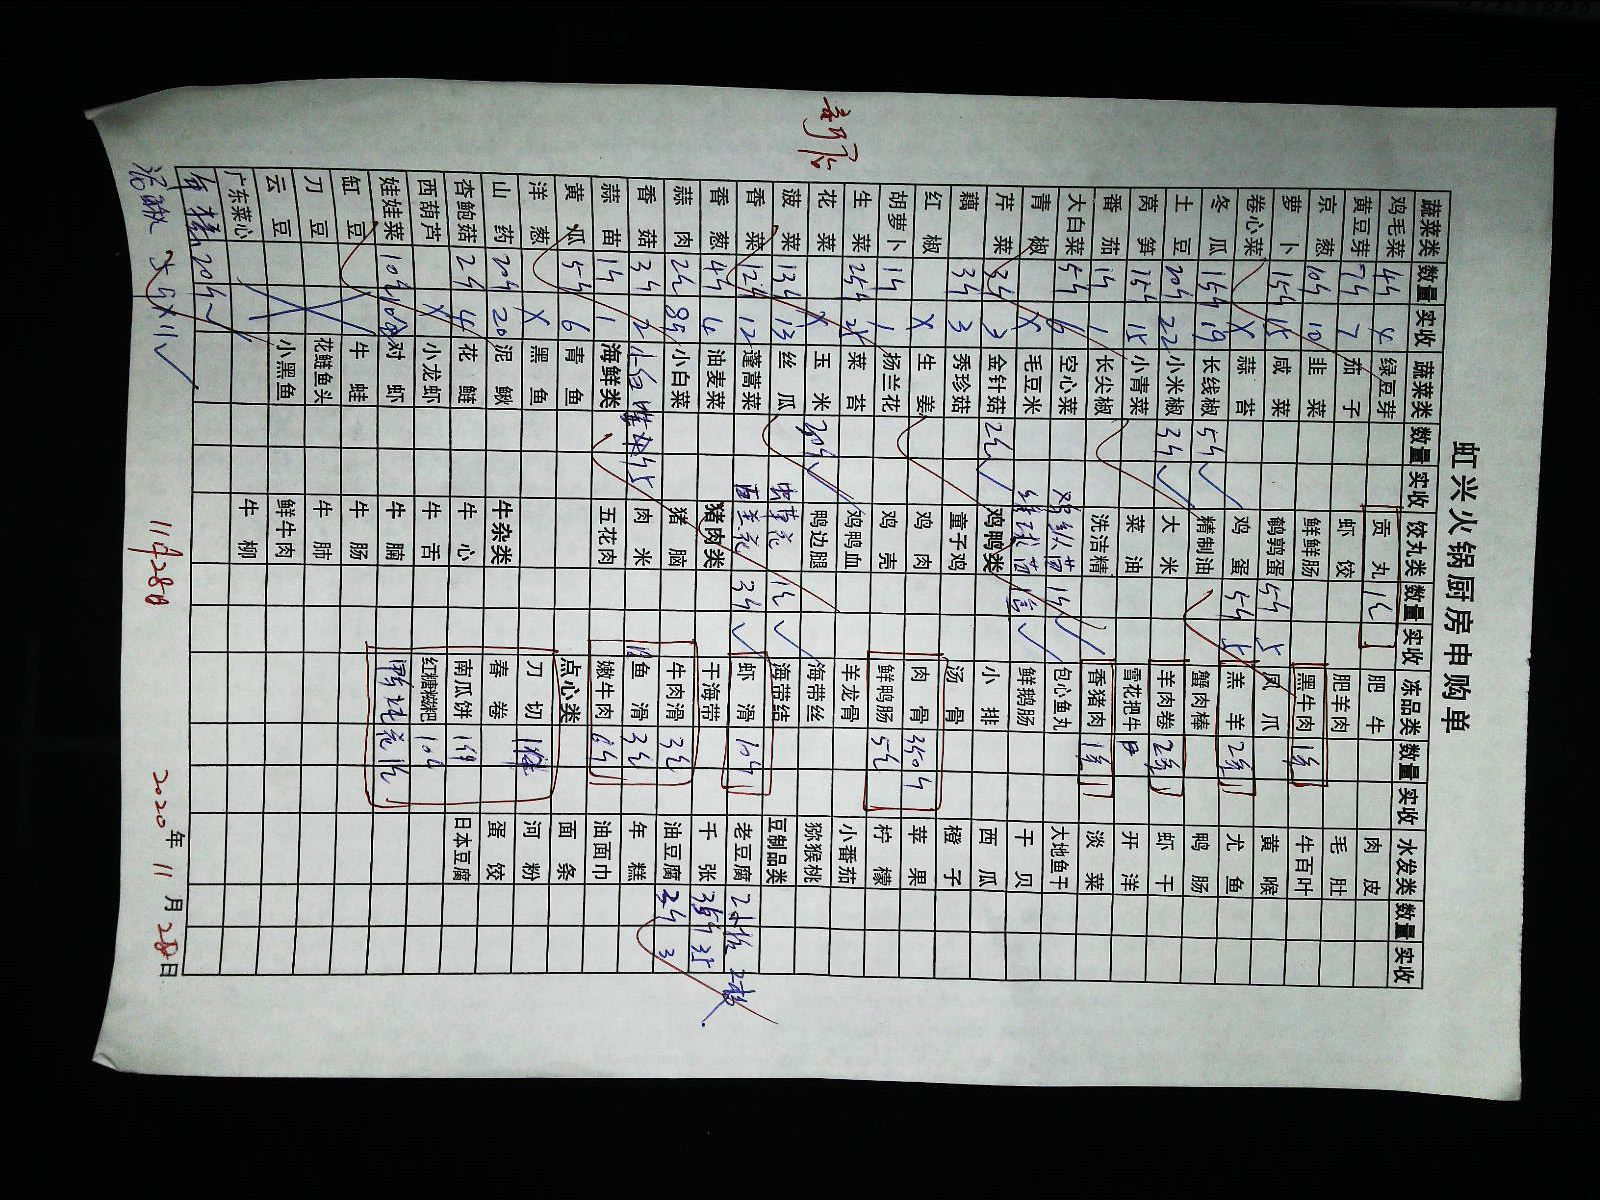 虹兴火锅厨房申购单
蔬菜类 数量 实收 蔬菜类 数量 实收 饺丸类 数量 实收 冻品类 数量 实收 水发类 数量 实收
鸡毛菜 4斤 4 绿豆芽 贡丸 1包 肥牛 肉皮
黄豆芽 7斤 7 茄子 虾饺 肥羊肉 毛肚
京葱 10斤 10 韭菜 鲜鲜肠 黑牛肉 1条 牛百叶
萝卜 15斤 15 咸菜 鹌鹑蛋 5斤 5 凤爪 黄喉
卷心菜 X 蒜苔 鸡蛋 5斤 5 羔羊 2条 尤鱼
冬瓜 15斤 19 长线椒 5斤 精制油 蟹肉棒 鸭肠
土豆 20斤 22 小米椒 3斤 大米 羊肉卷 2条 虾干
莴笋 15斤 15 小青菜 菜油 雪花把牛 开洋
番茄 1斤 1 长尖椒 洗洁精 香猪肉 1条 淡菜
大白菜 5斤 6 空心菜 包心鱼丸 大地鱼干
青椒 X 毛豆米 鲜鹅肠 干贝
芹菜 3斤 3 金针菇 2包 鸡鸭类 小排 西瓜
藕 3斤 3 秀珍菇 童子鸡 汤骨 橙子
红椒 X 生姜 鸡肉 肉骨 35斤 苹果
胡萝卜 1斤 1 扬兰花 鸡壳 鲜鸭肠 5包 柠檬
生菜 25斤 菜苔 鸡鸭血 羊龙骨 小番茄
花菜 X 玉米 30斤 鸭边腿 海带丝 猕猴桃
菠菜 13斤 13 丝瓜 虫草花 1包 海带结 豆制品类
香菜 12斤 12 蓬蒿菜 3斤 虾滑 10斤 老豆腐
香葱 4斤 4 油麦菜 猪肉类 干海带 千张 35斤 35
蒜肉 2包 小白菜 猪脑 牛肉滑 3包 油豆腐 3斤 3
香菇 3斤 2 肉米 鱼滑 3包 年糕
蒜苗 1斤 1 海鲜类 五花肉 嫩牛肉 6斤 油面巾
黄瓜 5斤 6 青鱼 点心类 面条
洋葱 X 黑鱼 刀切 河粉
山药 20斤 20 泥鳅 牛杂类 春卷 蛋饺
杏鲍菇 2斤 4 花鲢 牛心 南瓜饼 日本豆腐
西葫芦 X 小龙虾 牛舌 红糖糍粑
娃娃菜 对虾 牛腩
缸豆 牛蛙 牛肠
刀豆 花鲢鱼头 牛肺
云豆 小黑鱼 鲜牛肉
广东菜心 牛柳
11月28日 2020年11月28日